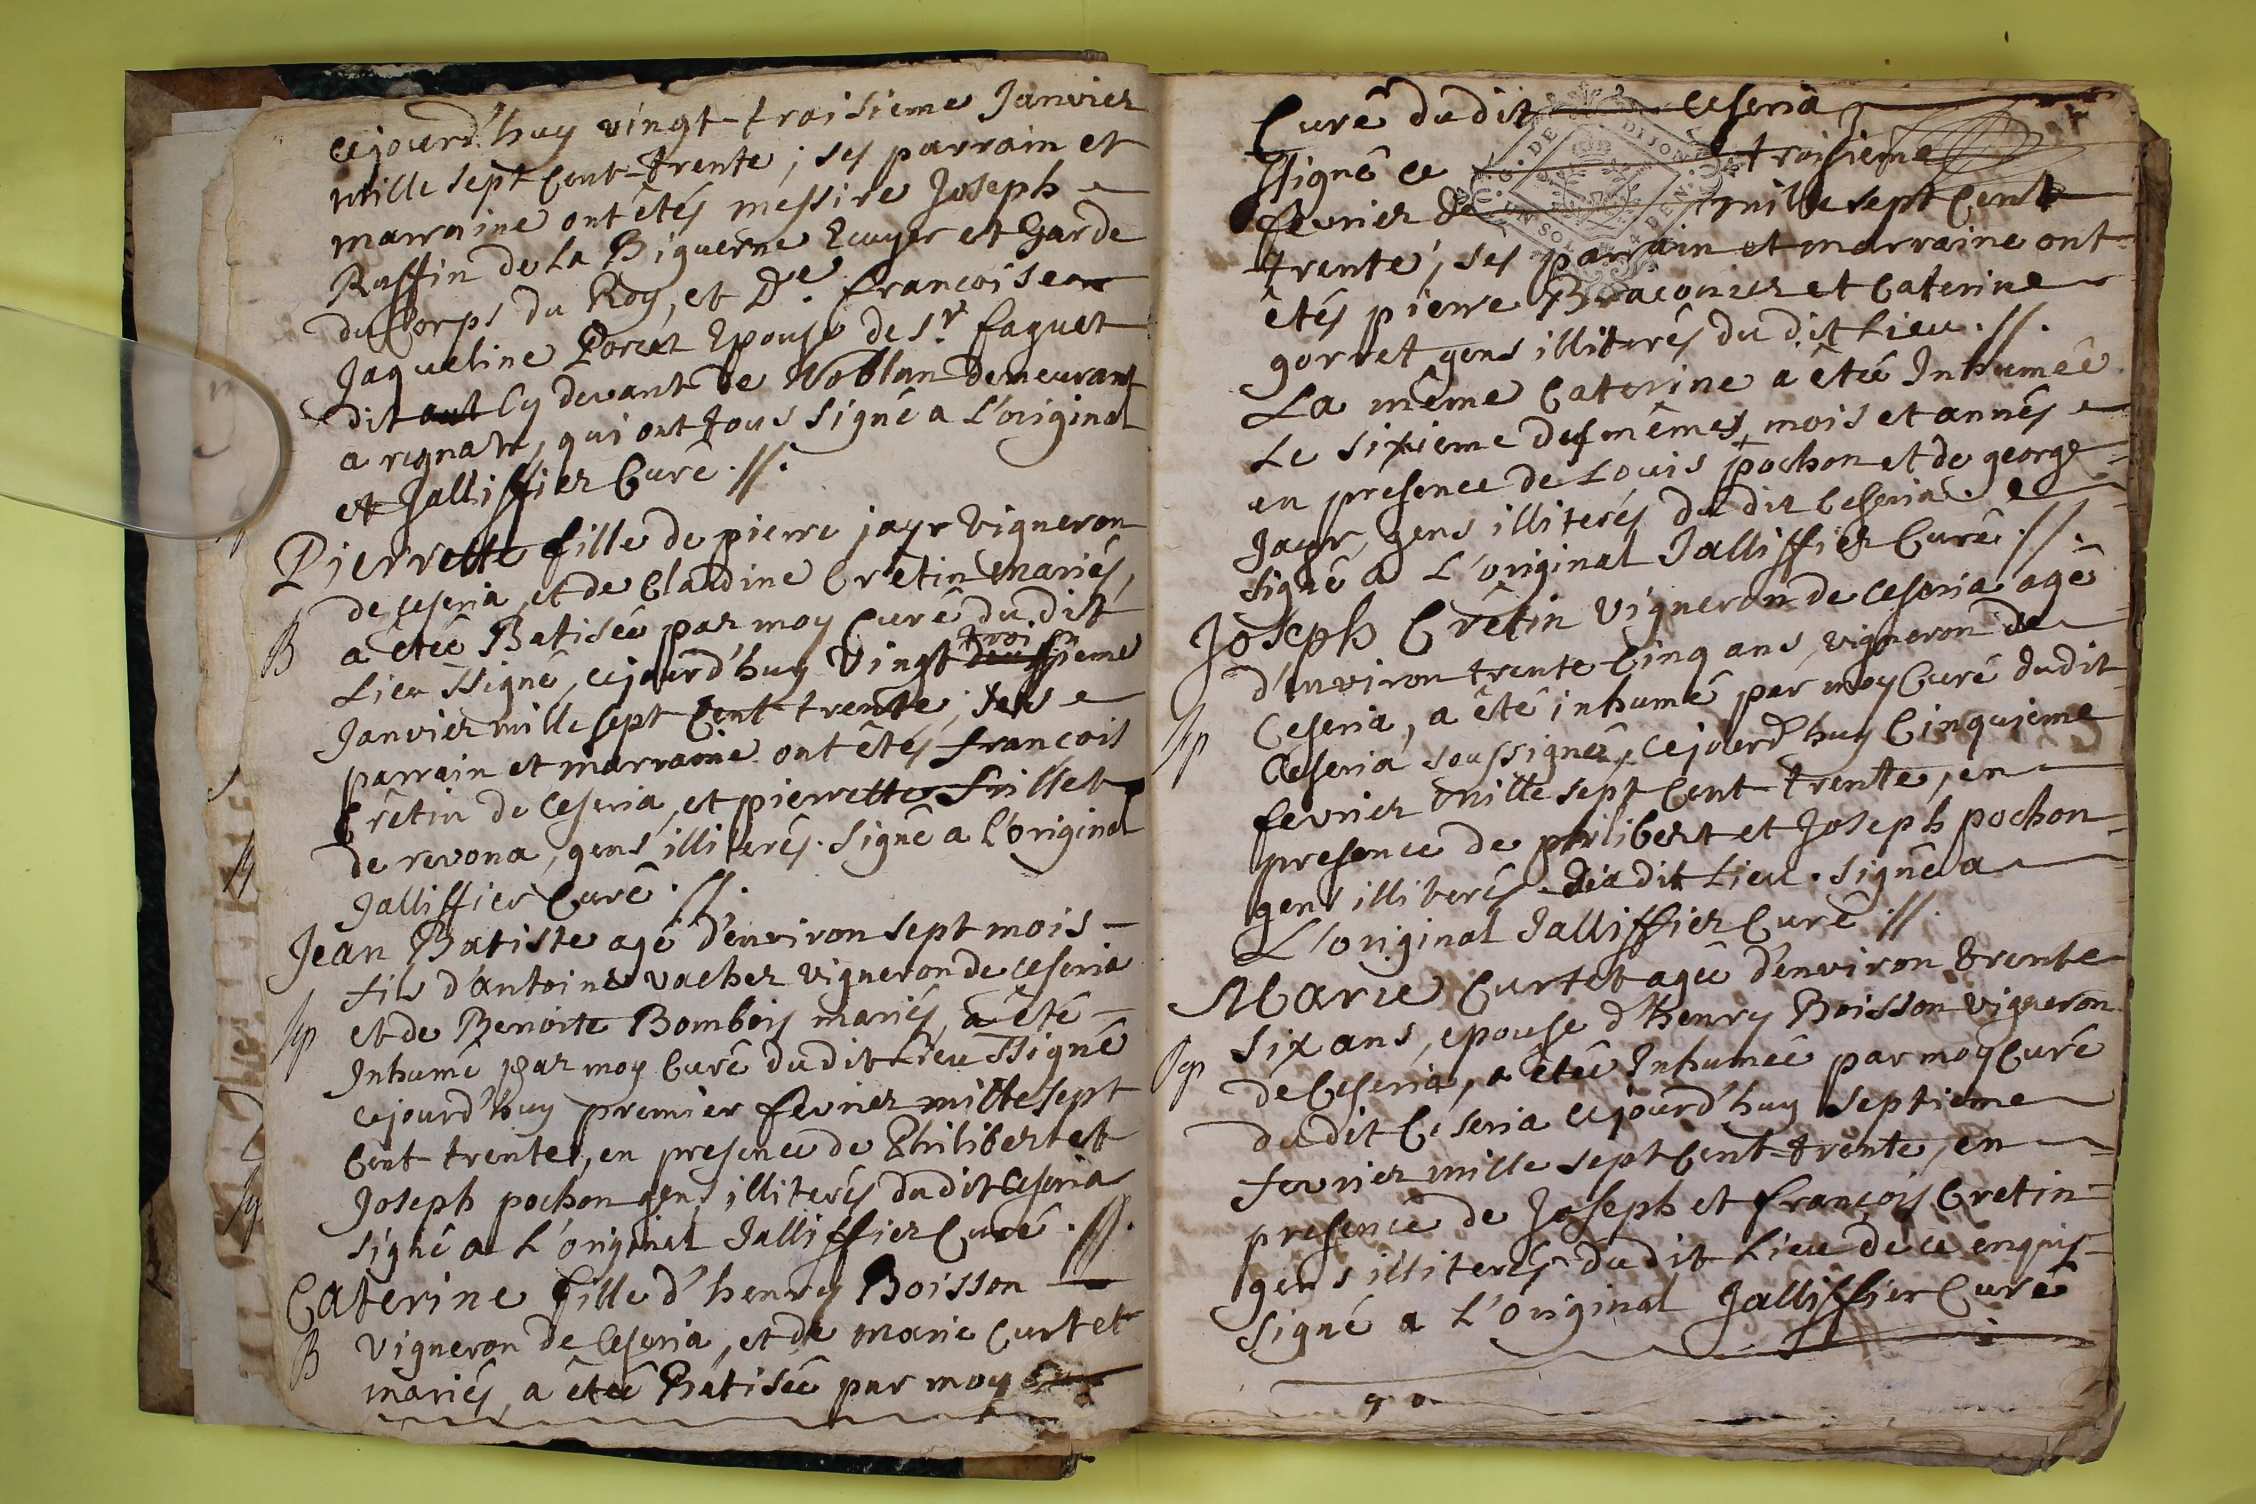 cejourd'huy vingt-troisieme Janvier
mille sept Cent-trente ; ses parrain et
marraine ont êtés messire Joseph
Ruffin de La Biguerne Ecuyer et Garde
du Corps du Roy, et De. francoise
Jaqueline Porcet Epouse de Sr. faguet
dit Cy devant de Noblan demeurant
a rignat, qui ont tous Signé a L'original
et Jalliffier Curé .//.
Pierrette fille de pierre jayr vigneron
de ceseria, et de Claudine Cretin mariés,
B a êtée Batisée par moy Curé du dit
troi
Lieu ssigné, cejourd'huy Vingt sieme
Janvier mille sept Cent trente ; ses
parrain et marraine ont êtés francois
Crêtin de Ceseria, et pierrette fuillet
de revona, gens illiterés. Signé a L'original
Jalliffier Curé .//.
Jean Batiste agé d'environ sept mois
fils d'antoine vacher vigneron de ceseria
Sp et de Benoite Bombois mariés, a êté
Inhumé par moy Curé du dit Lieu ssigné
cejourd'huy premier fevrier mille sept
Cent trente, en presence de Philibert et
Joseph pochon gens illiterés du dit Ceseria
signé a L'original Jalliffier Curé .//.
Caterine fille d'henry Boisson
B Vigneron de Ceseria, et de marie Curtet
mariés, a êtée Batisée par moy
Curé du dit ceseria
ssigné ce troisieme
fevrier de mille sept Cent
trente ; ses parrain et marraine ont
êtés pierre Braconier et Caterine
gorret gens illiterés du dit Lieu .//.
La même Caterine a êtée Inhumée
Le sixieme des mêmes mois et annés
en presence de Louis pochon et de george
Jayr, gens illiterés du dit Ceseria.
signé a L'original Jalliffier Curé .//.
Joseph Crêtin Vigneron de ceseria agé
d'environ trente Cinq ans, vigneron de
Sp Ceseria, a êté inhumé par moy Curé du dit
Ceseria soussigné, cejourd'huy Cinquieme
fevrier mille sept Cent-trente, en
presence de philibert et Joseph pochon
gens illiterés du dit Lieu. Signé a
L'original Jalliffier Curé .//.
Marie Curtet agée d'environ trente
six ans, epouse d'henry Boisson vigneron
Sp de Ceseria, a êtée Inhumée par moy Curé
du dit Ceseria cejourd'huy septieme
fevrier mille sept Cent-trente, en
presence de Joseph et francois Cretin
gens illiterés du dit Lieu de ce enquis
signé a L'original Jalliffier Curé